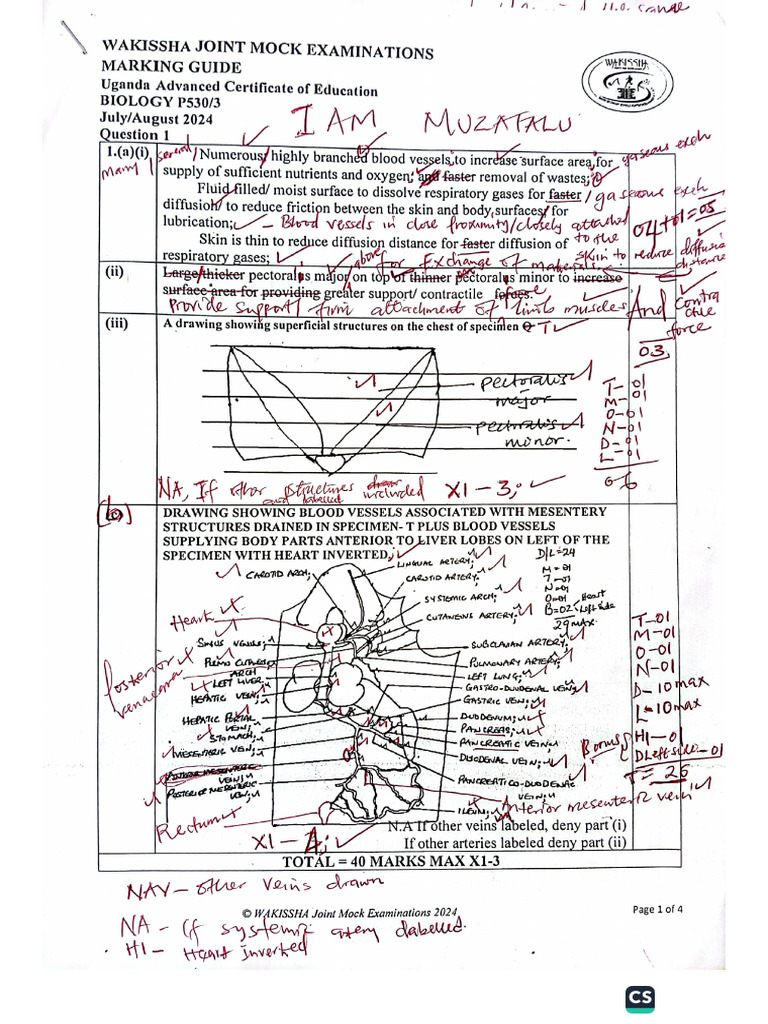 WAKISSHA JOINT MOCK EXAMINATIONS
MARKING GUIDE
Uganda Advanced Certificate of Education
BIOLOGY P530/3
July/August 2024
Question 1
I AM MUZATALU
WAKISSHA
1.(a)(i) several/ Numerous/ highly branched blood vessels, to increase surface area, for gaseous exch
many/ supply of sufficient nutrients and oxygen; and faster removal of wastes;
Fluid filled/ moist surface to dissolve respiratory gases for faster / gaseous exch
diffusion/ to reduce friction between the skin and body surfaces/ for
lubrication; - Blood vessels in close proximity/closely attached to the skin to reduce diffusion distance
04+01=05
Skin is thin to reduce diffusion distance for faster diffusion of
respiratory gases; for Exchange of materials
(ii) Large/thicker pectoralis major/on top of above thinner pectoralis minor to increase
surface area for providing greater support/ contractile forces.
Provide support/ firm attachment of limb muscles And contractile force
03
(iii) A drawing showing superficial structures on the chest of specimen Q T
pectoralis major
pectoralis minor.
T-01
M-01
O-01
N-01
D-01
L-01
06
NA, If other structures drawn and labelled included X1-3;
(c) DRAWING SHOWING BLOOD VESSELS ASSOCIATED WITH MESENTERY
STRUCTURES DRAINED IN SPECIMEN- T PLUS BLOOD VESSELS
SUPPLYING BODY PARTS ANTERIOR TO LIVER LOBES ON LEFT OF THE
SPECIMEN WITH HEART INVERTED,
D/L=24
M=01
T-01
N=01
O=01
B=02 Heart Left side
29 max
CAROTID ARCH;
LINGUAL ARTERY;
CAROTID ARTERY;
SYSTEMIC ARCH;
CUTANEOUS ARTERY;
Heart
SINUS VENOSUS;
PULMO CUTANEOUS ARCH
Posterior venacava
LEFT LIVER
HEPATIC VEIN;
HEPATIC PORTAL VEIN;
STOMACH;
MESENTERIC VEIN;
POSTERIOR MESENTERIC VEIN;
Rectum
SUBCLAVIAN ARTERY;
PULMONARY ARTERY;
LEFT LUNG;
GASTRO-DUODENAL VEIN;
GASTRIC VEIN;
DUODENUM;
PANCREAS;
PANCREATIC VEIN
DUODENAL VEIN;
PANCREATICO-DUODENAL VEIN;
ILEUM;
Anterior mesenteric vein
T-01
M-01
O-01
N-01
D-10 max
L=10 max
Bonus HI-01
D Left side-01
T=26
X1-4;
N.A If other veins labeled, deny part (i)
If other arteries labeled deny part (ii)
TOTAL = 40 MARKS MAX X1-3
NAV - other veins drawn
© WAKISSHA Joint Mock Examinations 2024
Page 1 of 4
NA - If systemic artery labelled.
HI - Heart inverted
CS